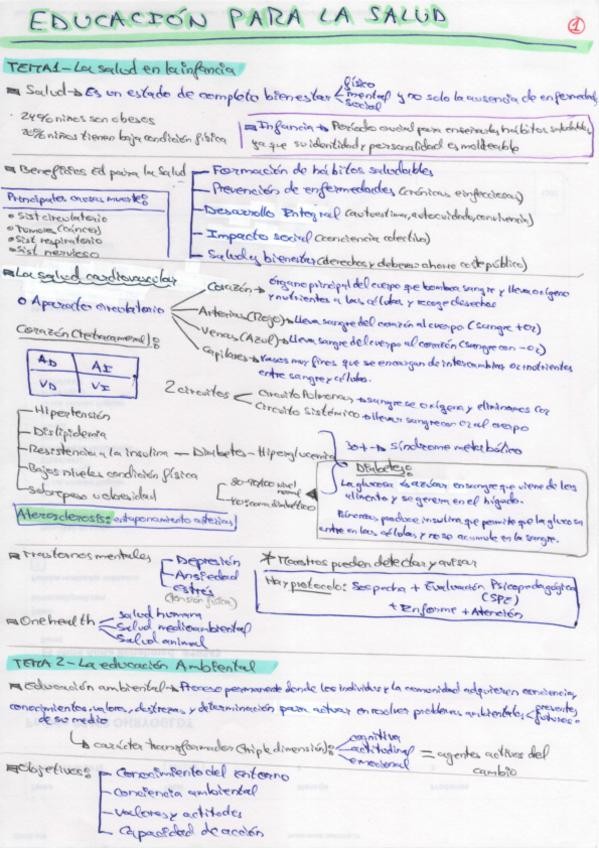 EDUCACIÓN PARA LA SALUD
1
TEMA 1 - La salud en la infancia
Salud → Es un estado de completo bienestar físico mental social y no solo la ausencia de enfermedades
24% niños son obesos
niños tienen baja condición física
Infancia → Período crucial para enseñarles hábitos saludables
ya que su identidad y personalidad es moldeable
Beneficios ed para la Salud
Formación de hábitos saludables
Prevención de enfermedades (crónicas e infecciosas)
Desarrollo Integral (autoestima, autocuidado, convivencia)
Impacto social (conciencia colectiva)
Salud y bienestar (derechos y deberes → ahorro público)
Principales causas muerte:
Sist circulatorio
Tumores (cáncer)
Sist respiratorio
Sist nervioso
La salud cardiovascular
Aparato circulatorio
Corazón → órgano principal del cuerpo que bombea sangre y lleva oxígeno
y nutrientes a las células y recoge desechos
Arterias (Rojo) → lleva sangre del corazón al cuerpo (sangre + O2)
Venas (Azul) → lleva sangre del cuerpo al corazón (sangre con - O2)
Capilares → vasos muy finos que se encargan de intercambiar O2 nutrientes
entre sangre y células.
Corazón (tetracameral):
AD AI
VD VI
2 circuitos
Circuito Pulmonar → sangre se oxigena y eliminamos CO2
Circuito Sistémico → llevar sangre con O2 al cuerpo
Hipertensión
Dislipidemia
Resistencia a la insulina — Diabetes - Hiperglucemia
Bajos niveles condición física
Sobrepeso u obesidad
3 o + → Síndrome metabólico
nivel
normal
Diabetes:
La glucosa es azúcar en sangre que viene de los
alimento y se genera en el hígado.
Páncreas produce insulina que permite que la glucosa
entre en las células y no se acumule en la sangre.
Aterosclerosis: entaponamiento arterias
Trastornos mentales
Depresión
Ansiedad
estrés
(tensión física)
* Maestros pueden detectar y avisar
Hay protocolo: Sospecha + Evaluación Psicopedagógica
+ Informe + Atención
One health
Salud humana
Salud medioambiental
Salud animal
TEMA 2 - La educación Ambiental
Educación ambiental → Proceso permanente donde los individuos y la comunidad adquieren conciencia,
conocimientos, valores, destrezas y determinación para actuar en resolver problemas ambientales presentes futuros
de su medio
carácter transformador (triple dimensión): cognitiva actitudinal emocional = agentes activos del
cambio
Objetivos:
Conocimiento del entorno
Conciencia ambiental
Valores y actitudes
Capacidad de acción